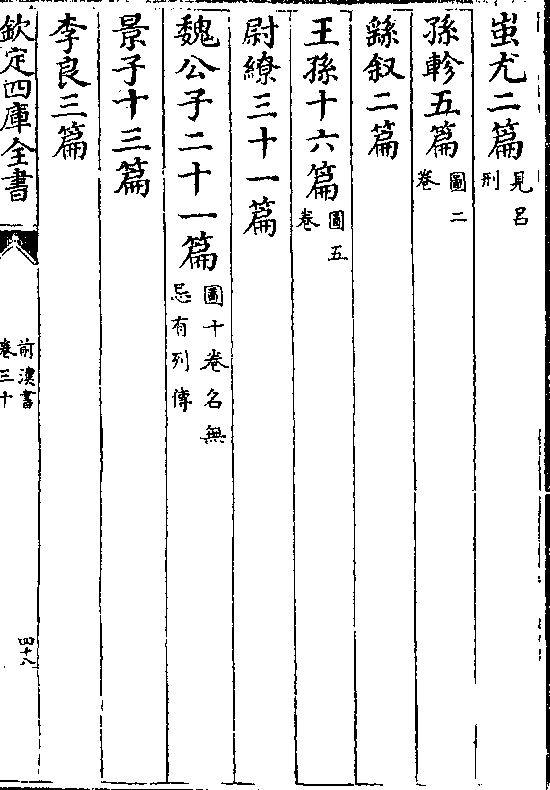 蚩尤二篇見吕刑
孫軫五篇圖二卷
繇叙二篇
王孫十六篇圖五卷
尉繚三十一篇
魏公子二十一篇圖十卷名無忌有列傳
景子十三篇
李良三篇
欽定四庫全書
前漢書
卷三十
四十八